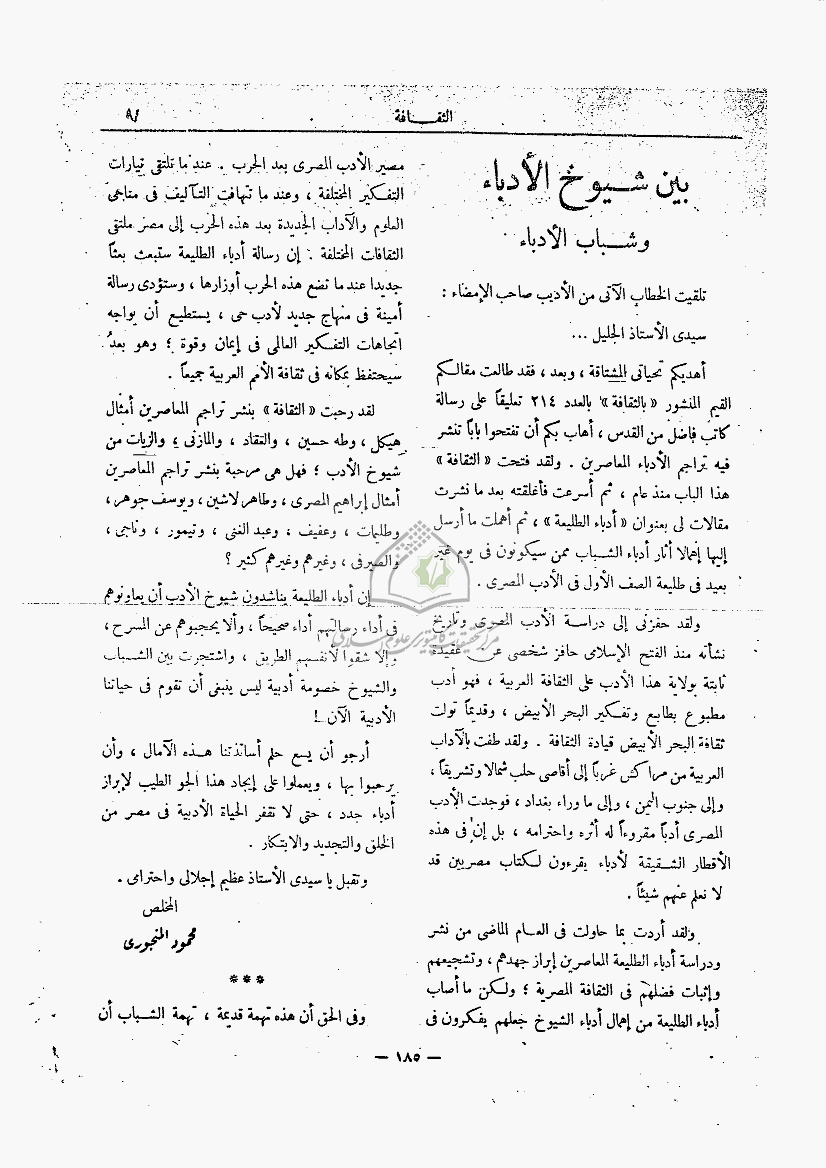 الثقافة
٩
بين شيوخ الأدباء
وشباب الأدباء
تلقيت الخطاب الآتى من الأديب صاحب الإمضاء :
سيدى الأستاذ الجليل ...
أهديكم تحياتى المشتاقة ، وبعد ، فقد طالعت مقالكم
القيم المنشور « بالثقافة » بالعدد ٢١٤ تعليقاً على رسالة
كاتب فاضل من القدس ، أهاب بكم أن تفتحوا باباً تنشر
فيه تراجم الأدباء المعاصرين . ولقد فتحت « الثقافة »
هذا الباب منذ عام ، ثم أسرعت فأغلقته بعد ما نشرت
مقالات لى بعنوان « أدباء الطليعة » ، ثم أهملت ما أرسل
إليها إهمالا آثار أدباء الشباب ممن سيكونون فى يوم غير
بعيد فى طليعة الصف الأول فى الأدب المصرى .
ولقد حفزنى إلى دراسة الأدب المصرى وتاريخ
نشأته منذ الفتح الإسلامى حافز شخصى عن عقيدة
ثابتة بولاية هذا الأدب على الثقافة العربية ، فهو أدب
مطبوع بطابع وتفكير البحر الأبيض ، وقديماً تولت
ثقافة البحر الأبيض قيادة الثقافة . ولقد طفت بالآداب
العربية من مراكش غرباً إلى أقاصى حلب شمالا وتشريقاً ،
وإلى جنوب اليمن ، وإلى ما وراء بغداد ، فوجدت الأدب
المصرى أدباً مقروءاً له أثره واحترامه ، بل إن فى هذه
الأقطار الشقيقة لأدباء يقرءون لكتاب مصريين قد
لا نعلم عنهم شيئاً .
ولقد أردت بما حاولت فى العام الماضى من نشر
ودراسة أدباء الطليعة المعاصرين إبراز جهدهم ، وتشجيعهم
وإثبات فضلهم فى الثقافة المصرية ؛ ولكن ما أصاب
أدباء الطليعة من إهمال أدباء الشيوخ جعلهم يفكرون فى
مصير الأدب المصرى بعد الحرب . عند ما تلتقى تيارات
التفكير المختلفة ، وعند ما تتهافت التآليف فى مناحى
العلوم والآداب الجديدة بعد هذه الحرب إلى مصر ملتقى
الثقافات المختلفة . إن رسالة أدباء الطليعة ستبعث بعثاً
جديدا عند ما تضع هذه الحرب أوزارها ، وستؤدى رسالة
أمينة فى منهاج جديد لأدب حى ، يستطيع أن يواجه
اتجاهات التفكير العالمى فى إيمان وقوة ؛ وهو بعدُ
سيحتفظ بمكانه فى ثقافة الأمم العربية جميعاً .
لقد رحبت « الثقافة » بنشر تراجم المعاصرين أمثال
هيكل ، وطه حسين ، والعقاد ، والمازنى ، والزيات من
شيوخ الأدب ؛ فهل هى مرحبة بنشر تراجم المعاصرين
أمثال إبراهيم المصرى ، وطاهر لاشين ، ويوسف جوهر ،
وطليمات ، وعفيف ، وعبد الغنى ، وتيمور ، وناجى ،
والصيرفى ، وغيرهم وغيرهم كثير ؟
إن أدباء الطليعة يناشدون شيوخ الأدب أن يعاونوهم
فى أداء رسالتهم أداء صحيحاً ، وألا يحجبوهم عن المسرح ،
وإلا شقوا لأنفسهم الطريق ، واشتجرت بين الشباب
والشيوخ خصومة أدبية ليس ينبغى أن تقوم فى حياتنا
الأدبية الآن !
أرجو أن يسع حلم أساتذتنا هذه الآمال ، وأن
يرحبوا بها ، ويعملوا على إيجاد هذا الجو الطيب لإبراز
أدباء جدد ، حتى لا تقفر الحياة الأدبية فى مصر من
الخلق والتجديد والابتكار .
وتقبل يا سيدى الأستاذ عظيم إجلالى واحترامى .
المخلص
محمود المنجورى
***
وفى الحق أن هذه تهمة قديمة ، تهمة الشباب أن
— ١٨٥ —